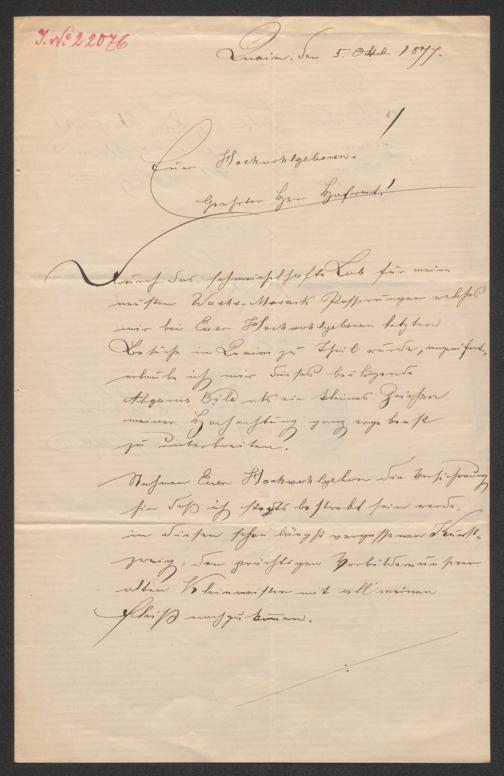 J. No 22076
den 5. Okt. 1877.
Euer Hochwohlgeboren.
Geehrter Herr Hofrat!
Durch das schmeichelhafte Lob für meine
neuesten Wachs-Mosaik Possirungen welches
mir bei Euer Hochwohlgeboren letzten
Besuche in zu Theil wurde,
erlaube ich mir dieses beiliegende
Abgarus Bild als ein kleines Zeichen
meiner Hochachtung ganz ergebenst
zu unterbreiten.
Nehmen Euer Hochwohlgeboren die Versicherung
hin daß ich stets bestrebt sein werde,
in diesem schon längst vergessenen Kunst-
zweig, den prächtigen Vorbildern unserer
alten Kleinmeister mit all meinen
Fleiß nachzukommen.